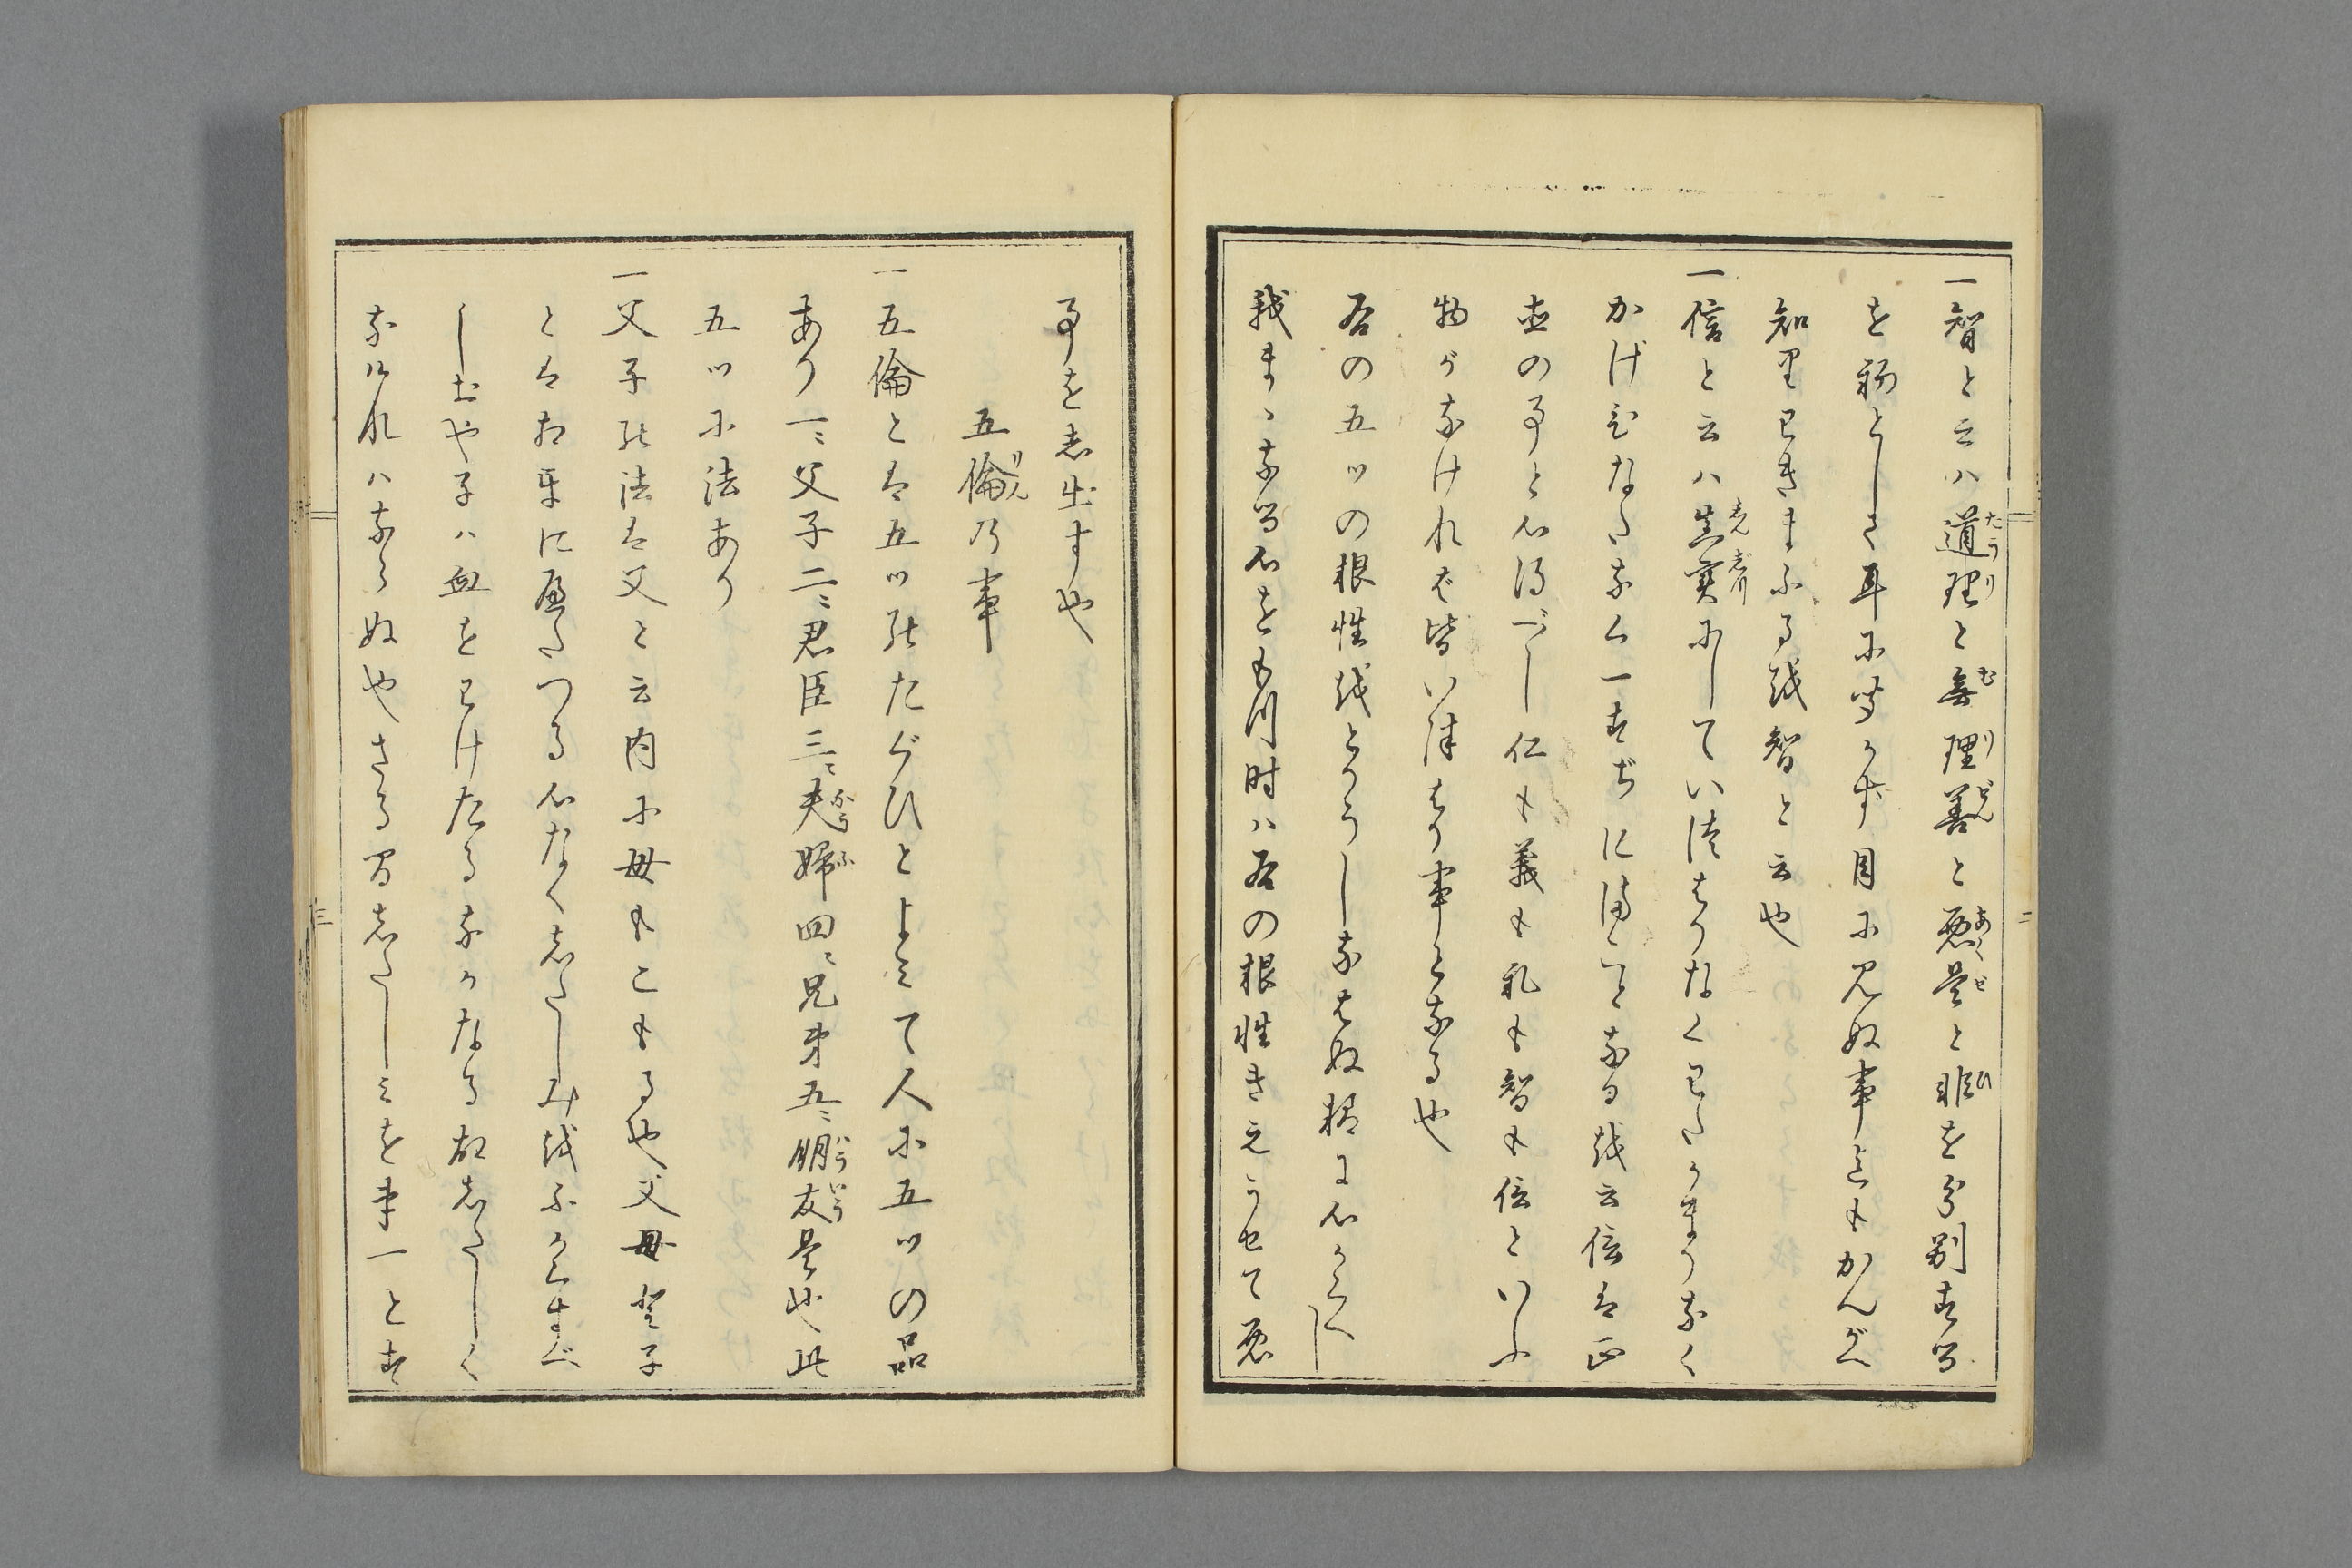 一智と云ハ道理と無理善と悪是と非を分別する
を初として耳に聞かず目に見ぬ事迄もかんがへ
知里わきまふる越智と云也
一信と云ハ真実にしていつはりなくわだかまりなく
かげひなたなく一すぢにまことなる越云信は正
直の事と心得べし仁も義も礼も智も信といふ
物がなければ皆いつはり事となるや
右の五ツの根性越とりうしなはぬ様に心がくべし
我まゝなる心をもつ時ハ右の根性きえうせて悪
事を志出すや
五倫乃事
一五倫とは五ツのたぐひとよみて人に五ツの品
あり一ニ父子二ニ君臣三ニ夫婦四ニ兄弟五ニ朋友是也此
五ツに法あり
一父子の法は父と云内に母もこもるや父母と子
とは相互にへだつる心なく志たしみ越ふかくすべ
しおや子ハ血をわけたるなかなる故志たしく
なければならぬやさる間志たしミを第一とす